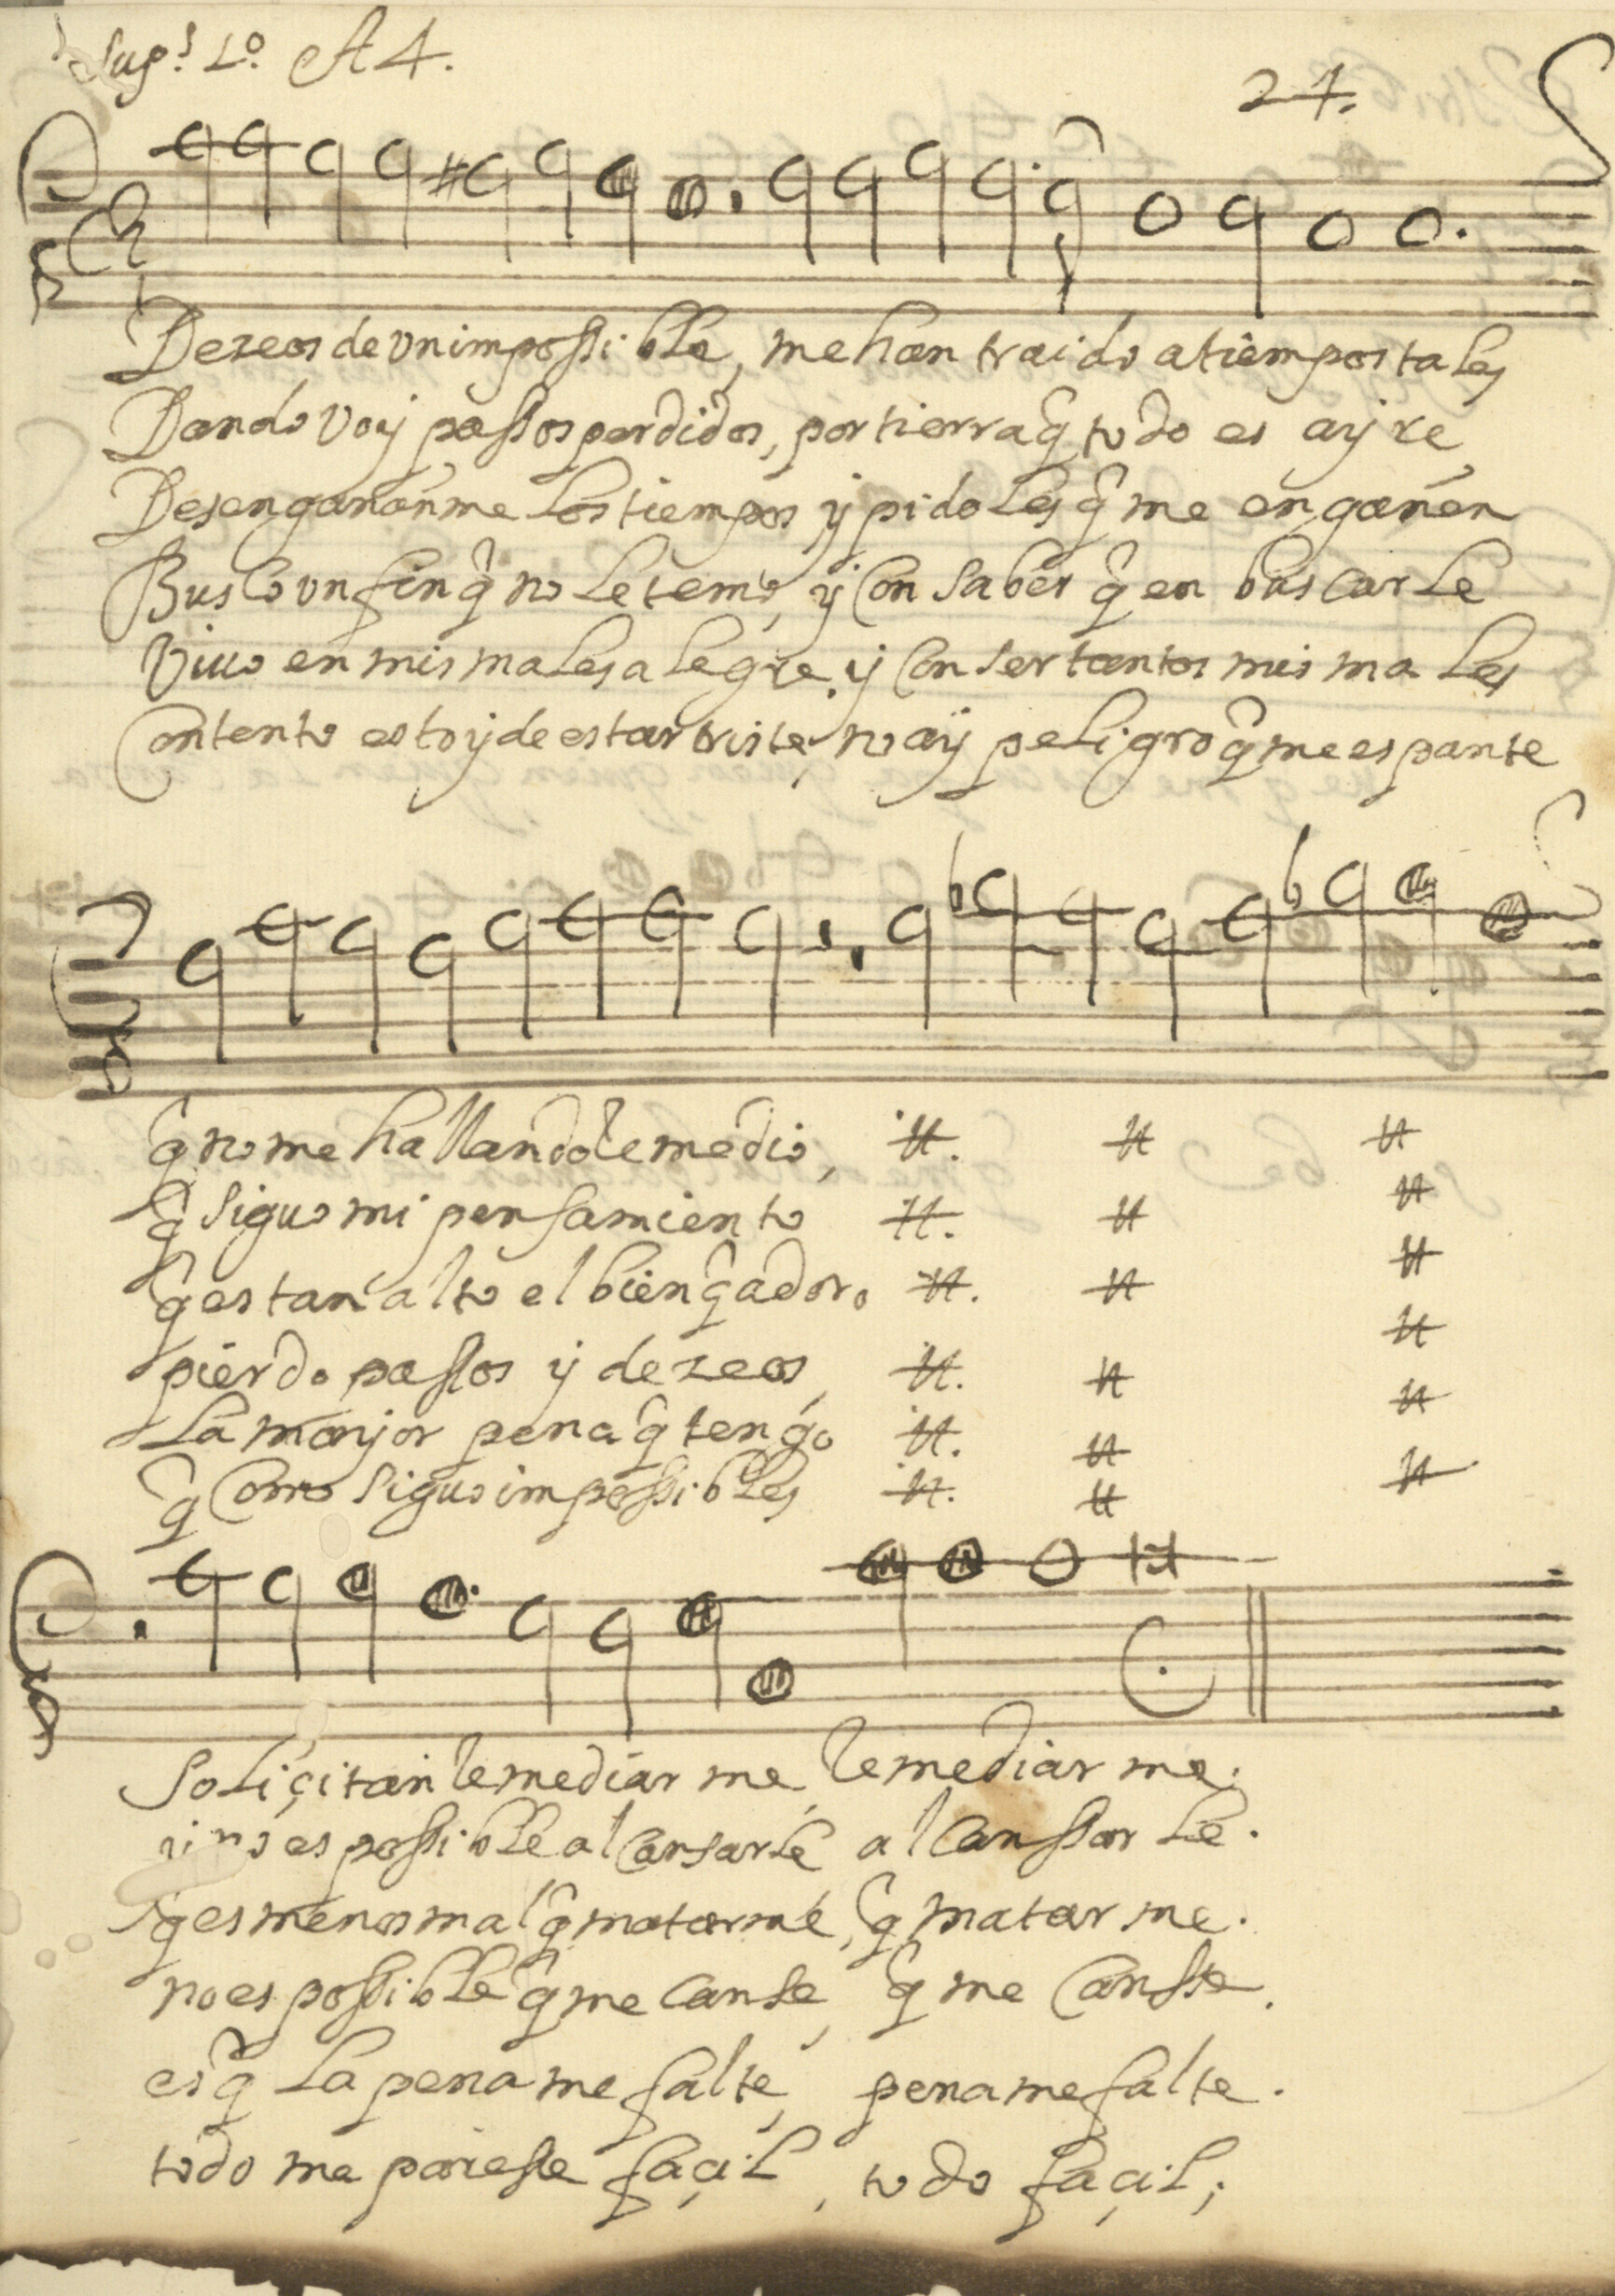 Sup.s 1.o A 4.
27.
Dezeos de un impossible, me han traido a tiempos tales
Dando voy passos perdidos, por tierra q̃ todo es ayre
Desengananme los tiempos, y pidoles q̃ me engañen
Busco un fin q̃ no le temo, y con saber q̃ en buscarle
Viuo en mis males alegre, y con ser tantos mis males
Contento estoy de estar triste, no aÿ peligro q̃ me espante
q̃ no me hallando Remedio,
q̃ siguo mi pensamiento
q̃ es tan alto el bien q̃ adoro
pierdo passos y dezeos,
La mayor pena q̃ tengo
q̃ como siguo impossibles
Soliçitan Remediar me, Remediar me.
y no es possible alcansarle alcanssar le.
q̃ es menos mal q̃ matarme, q̃ matar me.
no es possible q̃ me canse, q̃ me cansse.
es q̃ La pena me falte, pena me falte.
todo me paresse façil, todo façil;